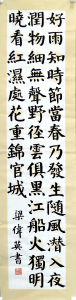 好雨知時節當春乃發生随風潛入夜
潤物細無聲野径雲俱黒江船火獨明
曉看紅濕處花重錦官城
梁偉英書